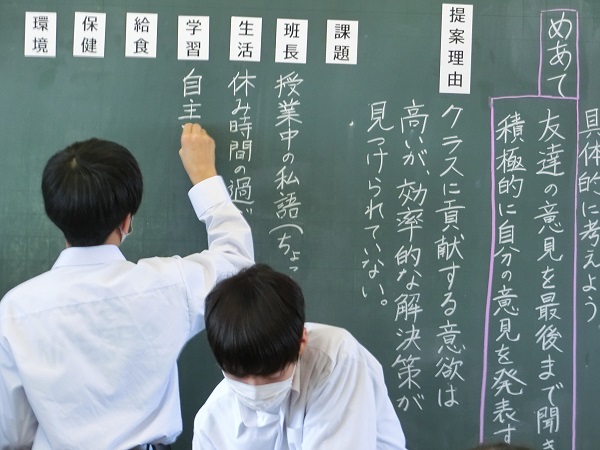 めあて
具体的に考えよう
友達の意見を最後まで聞き
積極的に自分の意見を発表す
提案理由
クラスに貢献する意欲は
高いが、効率的な解決策が
見つけられていない。
課題
班長
授業中の私語(ちょっ
生活
休み時間の過ご
学習
自主
給食
保健
環境